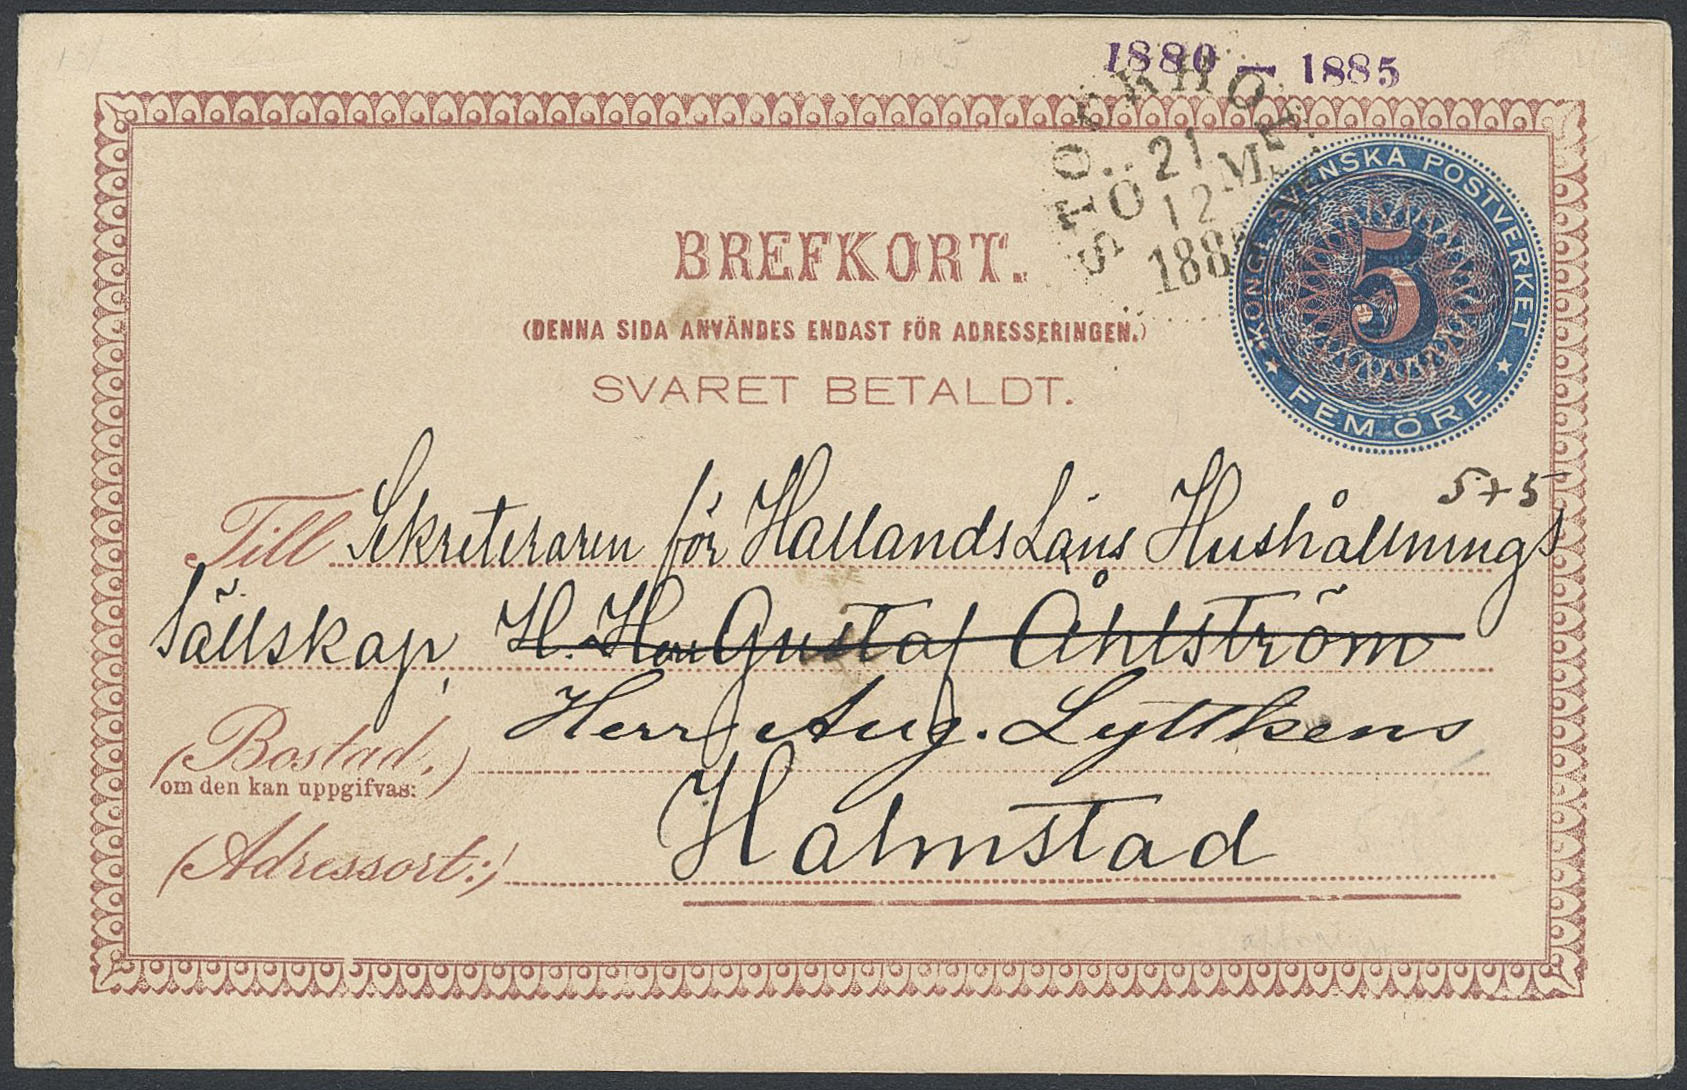 1880 — 1885
STOCKHOLM
21
Ö M
12
188
KONGL. SVENSKA POSTVERKET
5
FEM ÖRE
BREFKORT.
(DENNA SIDA ANVÄNDES ENDAST FÖR ADRESSERINGEN.)
SVARET BETALDT.
5+5
Till Sekreteraren för Hallands Läns Hushållnings
Sällskap, H. Herr Gustaf Åhlström
Herr Aug. Lyttkens
(Bostad,)
om den kan uppgifvas:
Halmstad
(Adressort:)